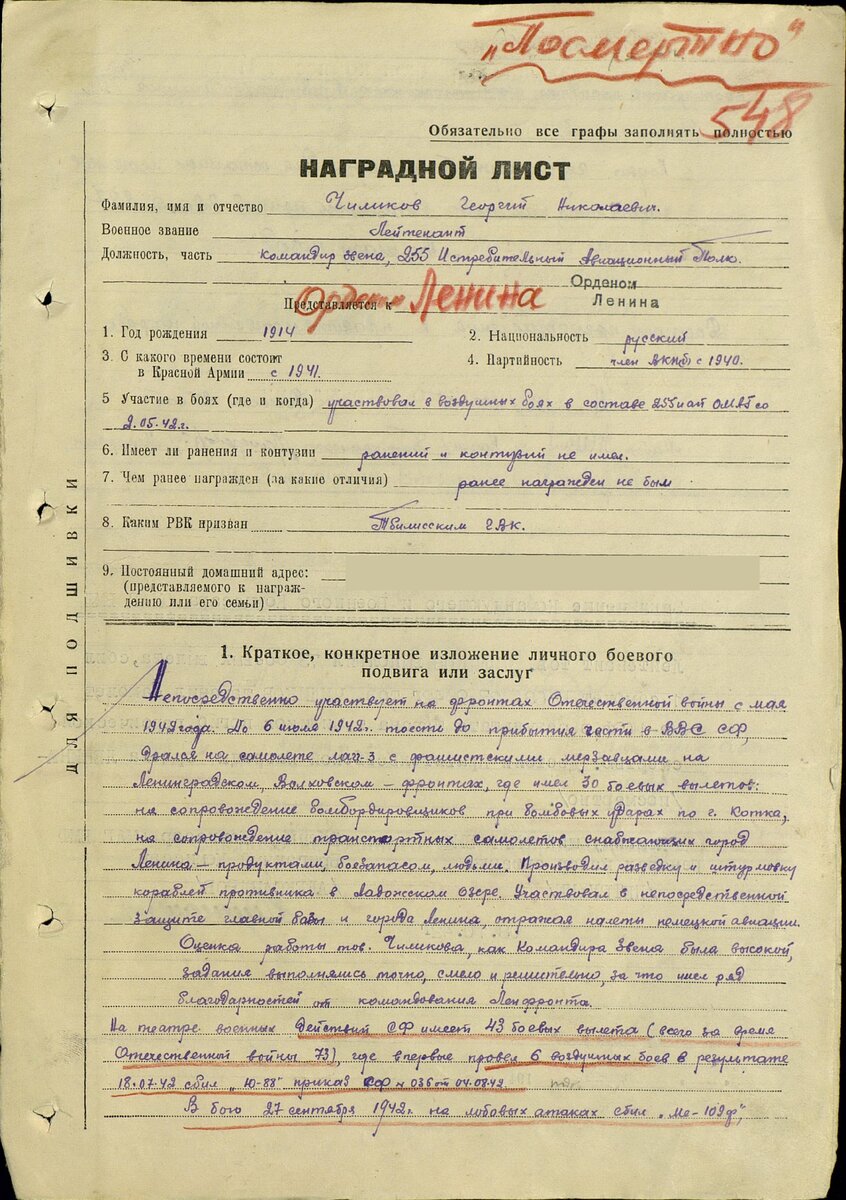 „Посмертно"
548
Обязательно все графы заполнять полностью
НАГРАДНОЙ ЛИСТ
Фамилия, имя и отчество Чиликов Георгий Николаевич.
Военное звание Лейтенант
Должность, часть командир звена, 255 Истребительный Авиационный Полк.
Орденом
Представляется к Орденом Ленина Ленина
1. Год рождения 1914 2. Национальность русский
3. С какого времени состоит
в Красной Армии с 1941. 4. Партийность член ВКПб с 1940.
5 Участие в боях (где и когда) участвовал в воздушных боях в составе 255 иап ОМАГ со
2.05.42г.
6. Имеет ли ранения и контузии ранений и контузий не имел.
7. Чем ранее награжден (за какие отличия) ранее награжден не был
8. Каким РВК призван Тбилисским ГВК.
9. Постоянный домашний адрес:
(представляемого к награж-
дению или его семьи)
ДЛЯ ПОДШИВКИ
1. Краткое, конкретное изложение личного боевого
подвига или заслуг
Непосредственно участвует на фронтах Отечественной войны с мая
1942 года. До 6 июля 1942г. тоесть до прибытия части в ВВС СФ,
Дрался на самолете лагг-3 с фашистскими мерзавцами на
Ленинградском, Волховском – фронтах, где имел 30 боевых вылетов:
на сопровождение бомбордировщиков при бомбовых ударах по г. Котка,
на сопровождение транспортных самолетов снабжающих город
Ленина – продуктами, боезапасом, людьми. Производил разведку и штурмовку
кораблей противника в Ладожском озере. Участвовал в непосредственной
защите главной базы и города Ленина, отражая налеты немецкой авиации.
Оценка работы тов. Чиликова, как Командира Звена была высокой,
задания выполнялись точно, смело и решительно, за что имел ряд
благодарностей от командования Ленфронта.
На театре военных Действий СФ имеет 43 боевых вылета (всего за время
Отечественной войны 73), где впервые провел 6 воздушных боев в результате
18.07.42 сбил „Ю-88" приказ СФ № 036 от 04.08.42.
В бою 27 сентября 1942г. на лобовых атаках сбил „Ме-109ф",